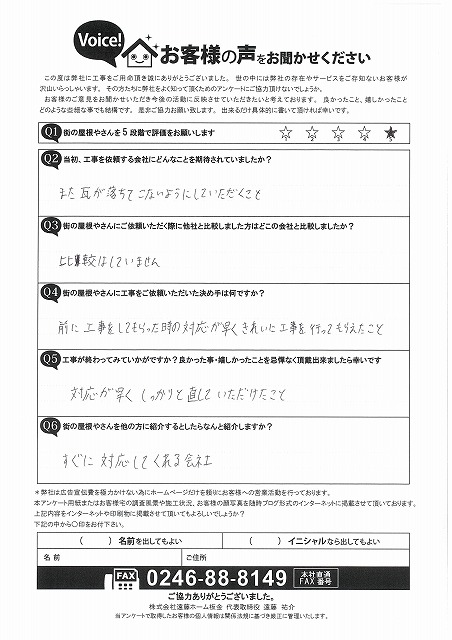 Voice! お客様の声をお聞かせください
この度は弊社に工事をご用命頂き誠にありがとうございました。 世の中には弊社の存在やサービスをご存知ないお客様が
沢山いらっしゃいます。 その方たちに弊社をよく知って頂くためのアンケートにご協力頂けないでしょうか。
お客様のご意見をお聞かせいただき今後の活動に反映させていただきたいと考えております。 良かったこと、嬉しかったこと
どのような些細な事でも結構です。 是非ご協力お願い致します。 出来るだけ具体的に書いて頂ければ幸いです。
Q1 街の屋根やさんを5段階で評価をお願いします
Q2 当初、工事を依頼する会社にどんなことを期待されていましたか?
また瓦が落ちてこないようにしていただくこと
Q3 街の屋根やさんにご依頼いただく際に他社と比較しました方はどこの会社と比較しましたか?
比較はしていません
Q4 街の屋根やさんに工事をご依頼いただいた決め手は何ですか?
前に工事をしてもらった時の対応が早くきれいに工事を行ってもらえたこと
Q5 工事が終わってみていかがですか?良かった事・嬉しかったことを忌憚なく頂戴出来ましたら幸いです
対応が早くしっかりと直していただけたこと
Q6 街の屋根やさんを他の方に紹介するとしたらなんと紹介しますか?
すぐに対応してくれる会社
*弊社は広告宣伝費を極力かけない為にホームページだけを頼りにお客様への営業活動を行っております。
本アンケート用紙またはお客様宅の調査風景や施工状況、お客様の顔写真を随時ブログ形式のインターネットに掲載させて頂いております。
上記内容をインターネットや印刷物に掲載させて頂いてもよろしいでしょうか?
下記の中から〇印をお付下さい。
( ) 名前を出してもよい ( ) イニシャルなら出してもよい
名前 ご住所
FAX 0246-88-8149 本社直通 FAX番号
ご協力ありがとうございました。
株式会社遠藤ホーム板金 代表取締役 遠藤 祐介
当アンケートで取得したお客様の個人情報は関係法規に基づき厳正に管理いたします。